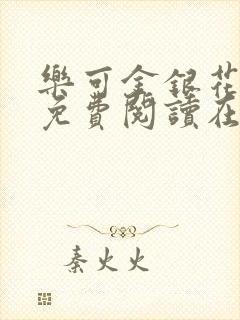 樂可金銀花
免費閱讀在
秦火火